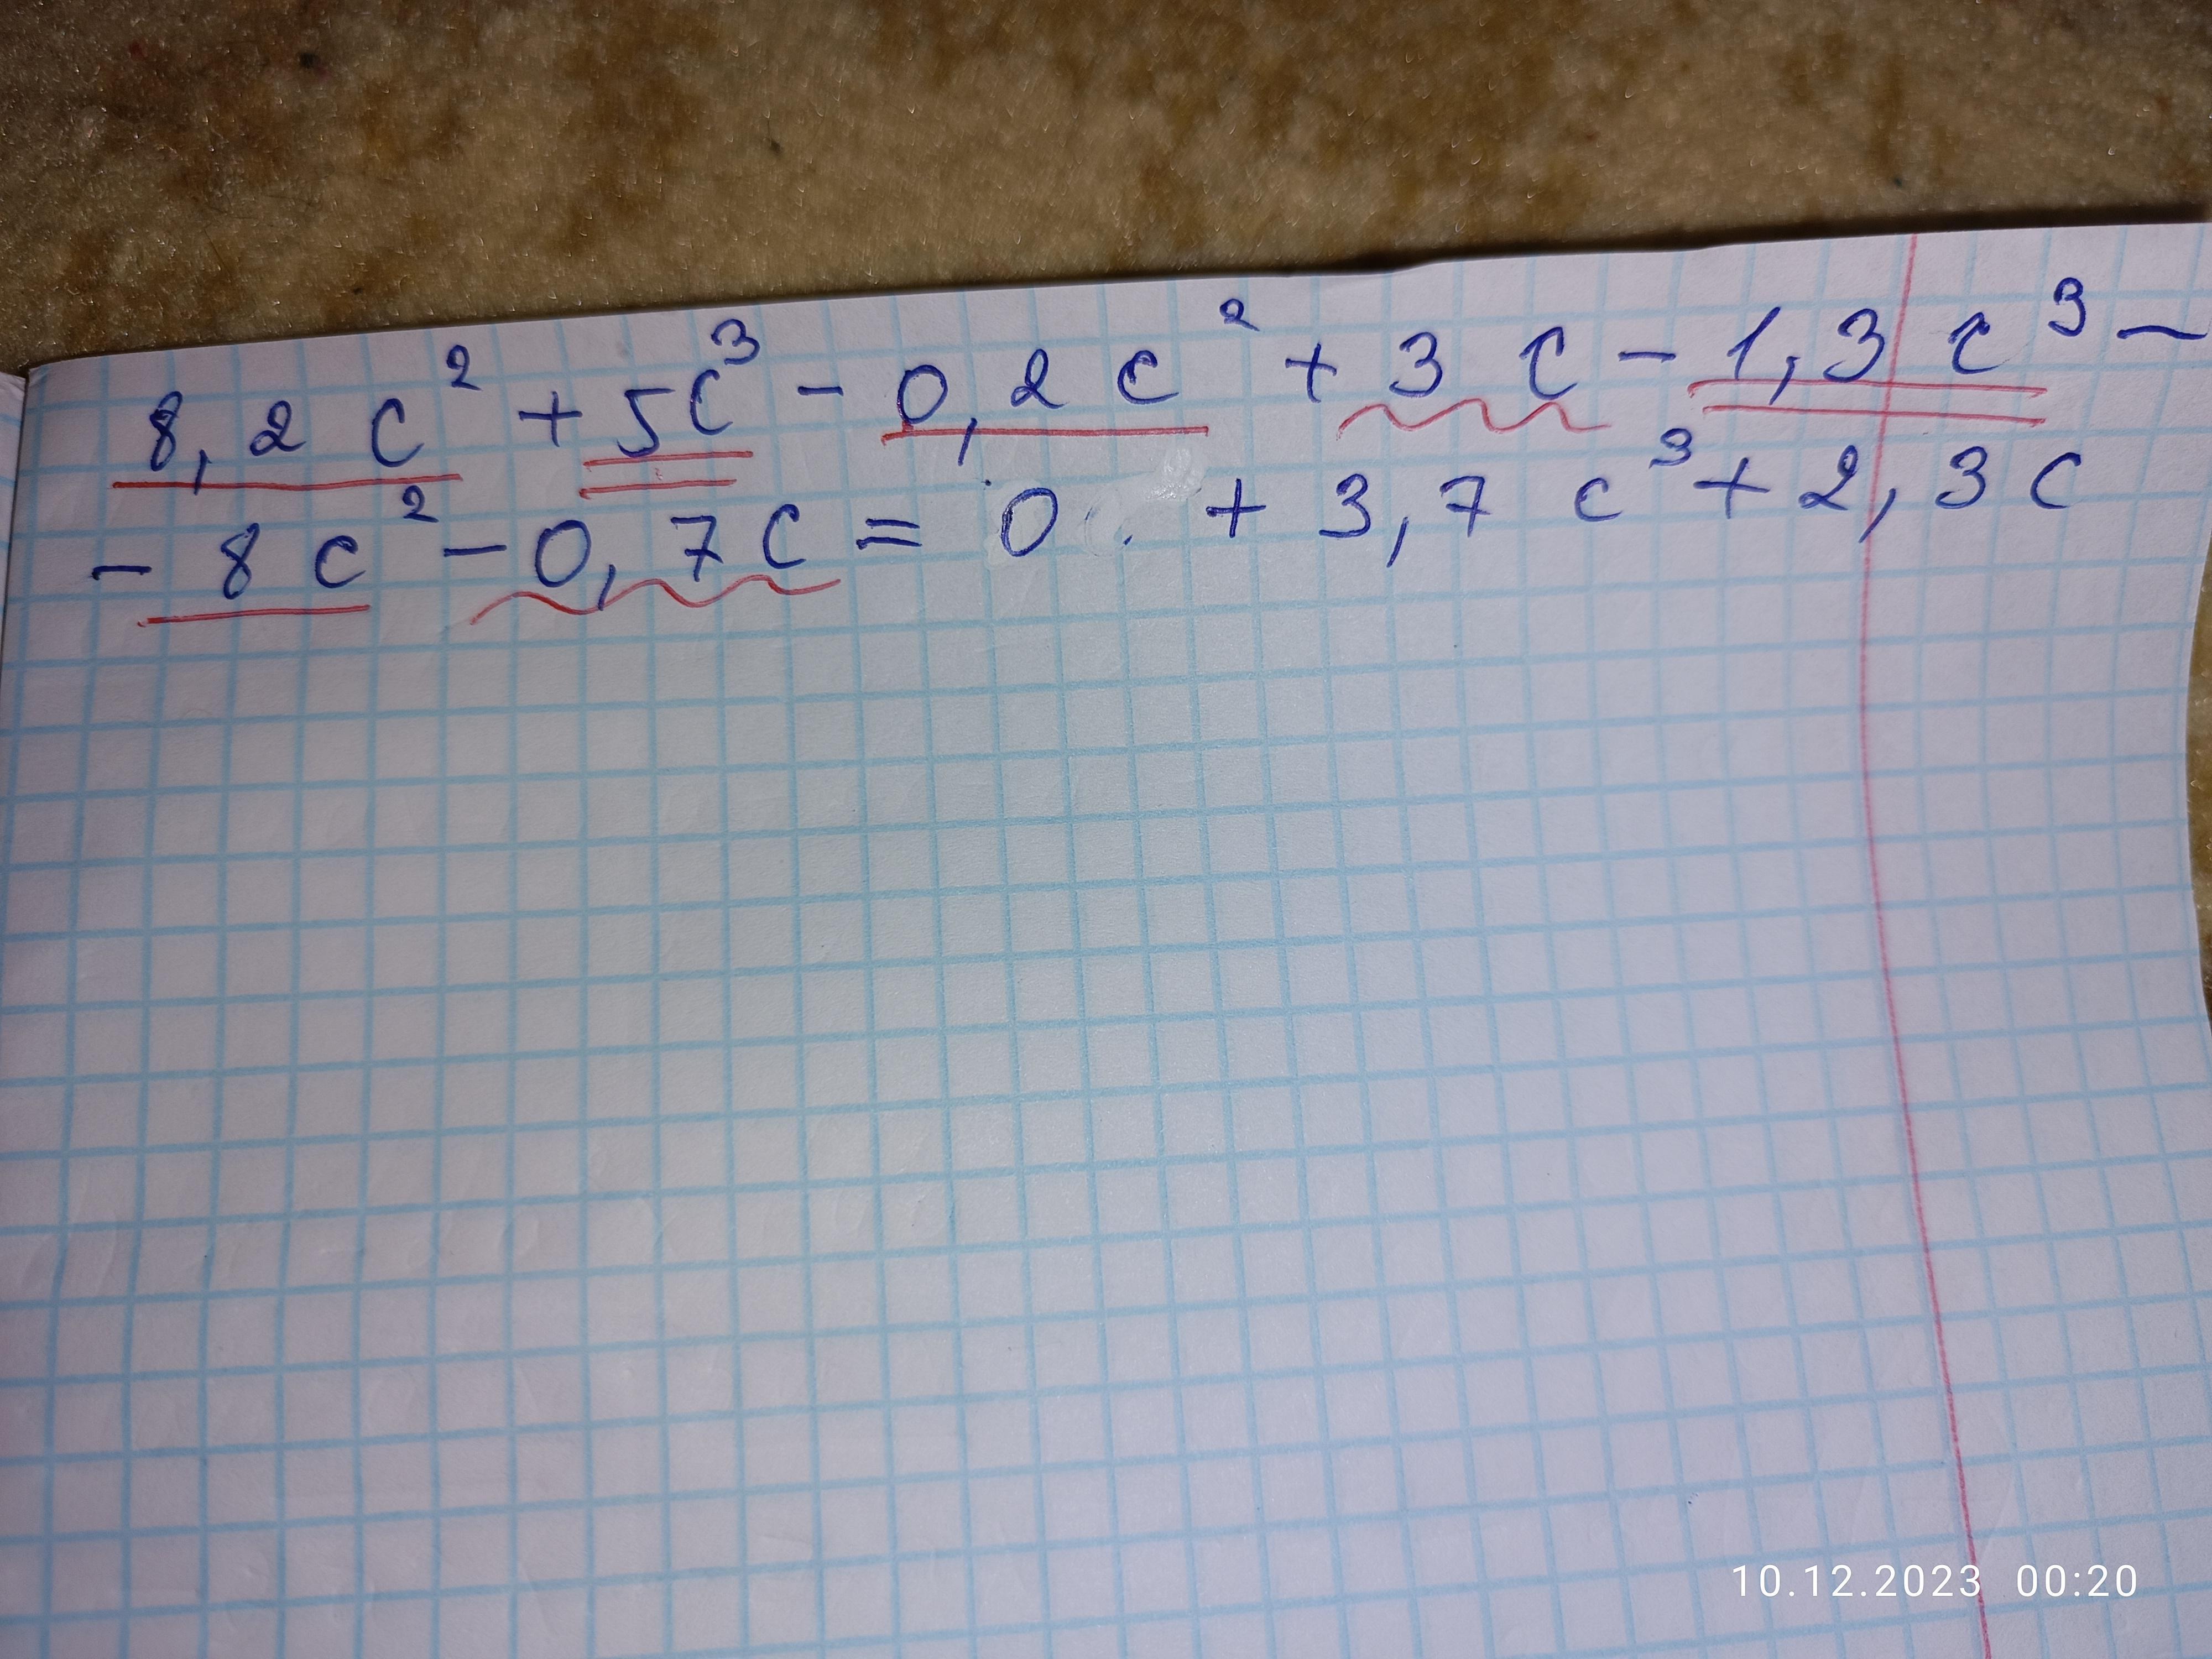 8,2 c² + 5c³ - 0,2 c² + 3 c - 1,3 c³ -
- 8 c² - 0,7 c = 0 + 3,7 c³ + 2,3 c
10.12.2023 00:20